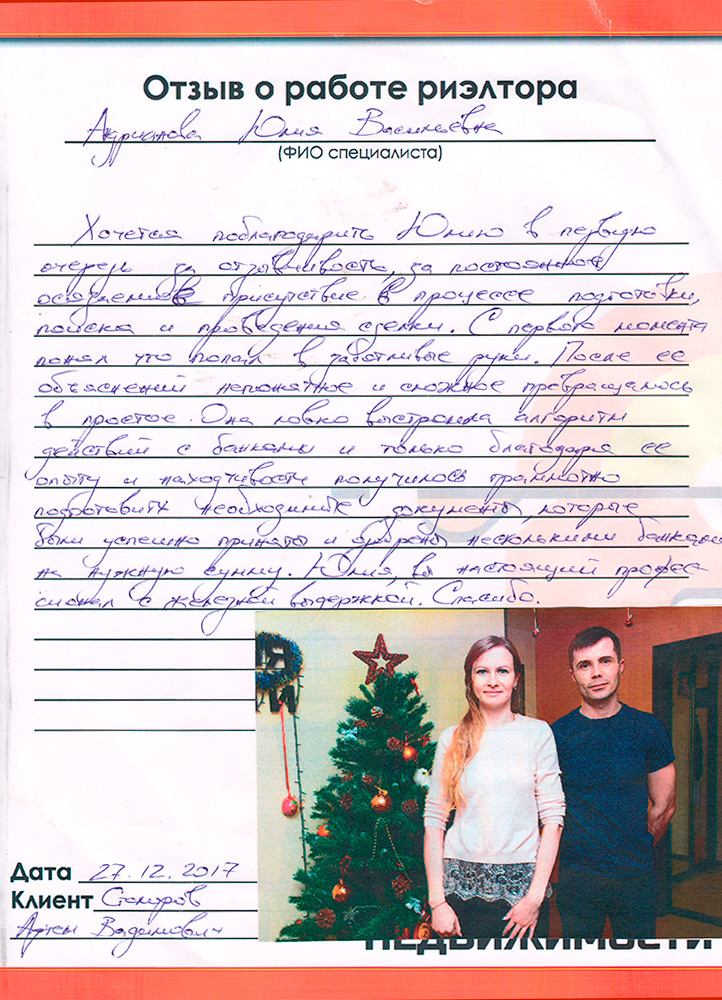 Отзыв о работе риэлтора
Андрианова Юлия Васильевна
(ФИО специалиста)
Хочется поблагодарить Юлию в первую
очередь за отзывчивость, за постоянное
осязаемое присутствие в процессе подготовки,
поиска и проведения сделки. С первого момента
понял что попал в заботливые руки. После ее
объяснений непонятное и сложное превращалось
в простое. Она ловко выстроила алгоритм
действий с банками и только благодаря ее
опыту и находчивости получилось грамотно
подготовить необходимые документы, которые
были успешно приняты и одобрены несколькими банками
на нужную сумму. Юлия, вы настоящий профес
сионал с железной выдержкой. Спасибо.
Я
И
Дата 27.12.2017
Клиент
Артем Вадимович
НЕДВИЖИМОСТИ